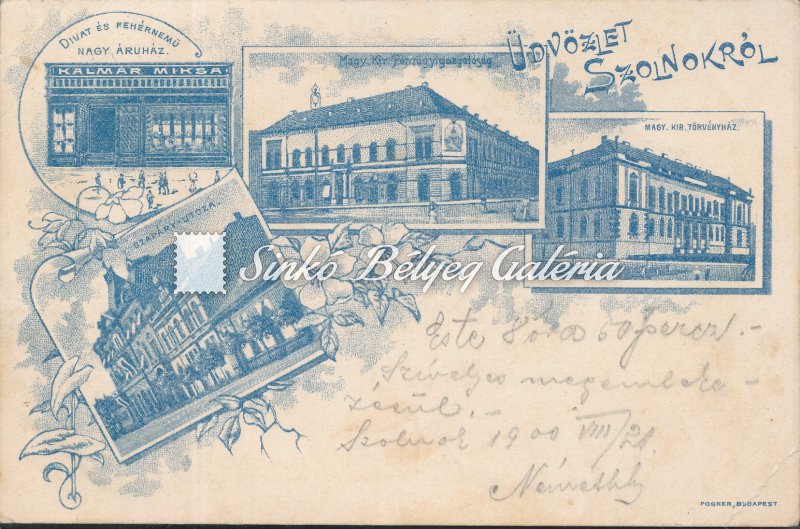 DIVAT ÉS FEHÉRNEMŰ
NAGY ÁRUHÁZ.
KALMÁR MIKSA
Magy. Kir. Pénzügyigazgatóság
ÜDVÖZLET
SZOLNOKRÓL
MAGY. KIR. TÖRVÉNYHÁZ.
SZAPÁRY-UTCZA.
Sinkó Bélyeg Galéria
Este 8 óra 50 percz.-
Szívelyes megemléke-
zésül.-
Szolnok 1900 VIII/21
POSNER, BUDAPEST.